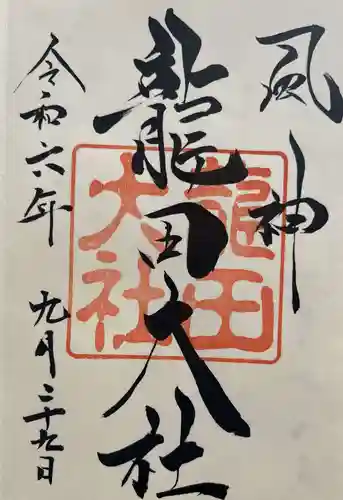 風神
龍田大社
龍田
大社
令和六年
九月二十九日